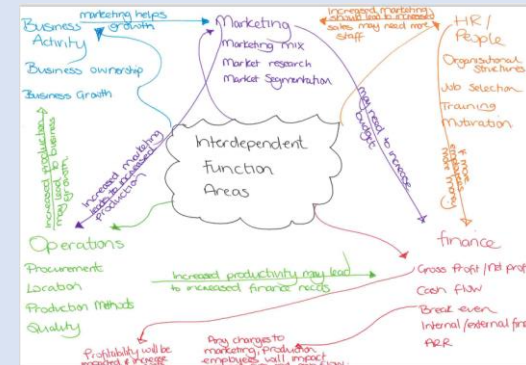 Business
Activity
Business ownership
Business Growth
marketing helps
growth
Marketing
Marketing mix
Market research
Market Segmentation
Increased marketing
should lead to increased
sales may need more
staff
HR/
People
Organisational
Structures
Job Selection
Training
Motivation
Increased Production
may lead to business
growth
Increased marketing
leads to increased
production
Interdependent
Function
Areas
may need to increase
budget
Operations
Procurement
Location
Production Methods
Quality
Increased productivity may lead
to increased finance needs
finance
Gross Profit/Net
Cash flow
Break even
Internal/external
ARR
Profitability will be
increase
Any changes to
marketing, production
employees will impact